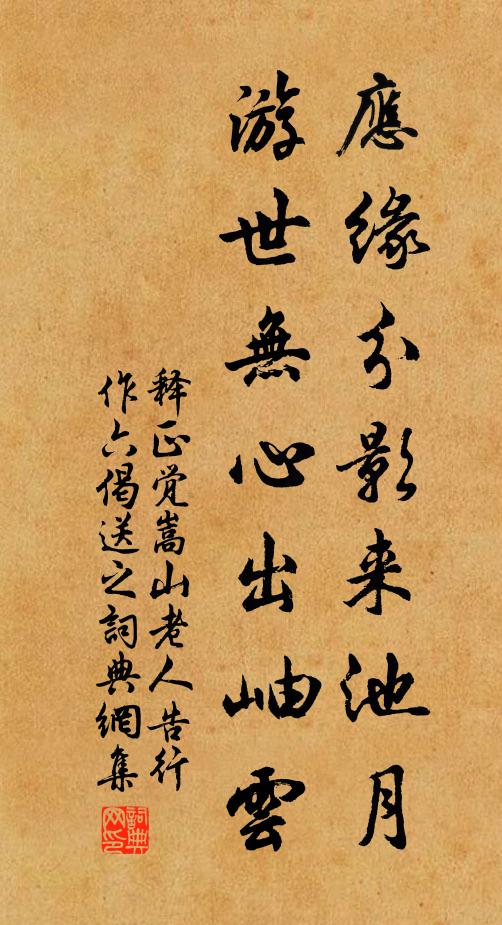 應緣分影来池月
游世無心出岫雲
释正觉嵩山老人告行
作六偈送之詞典網集
詞典网印